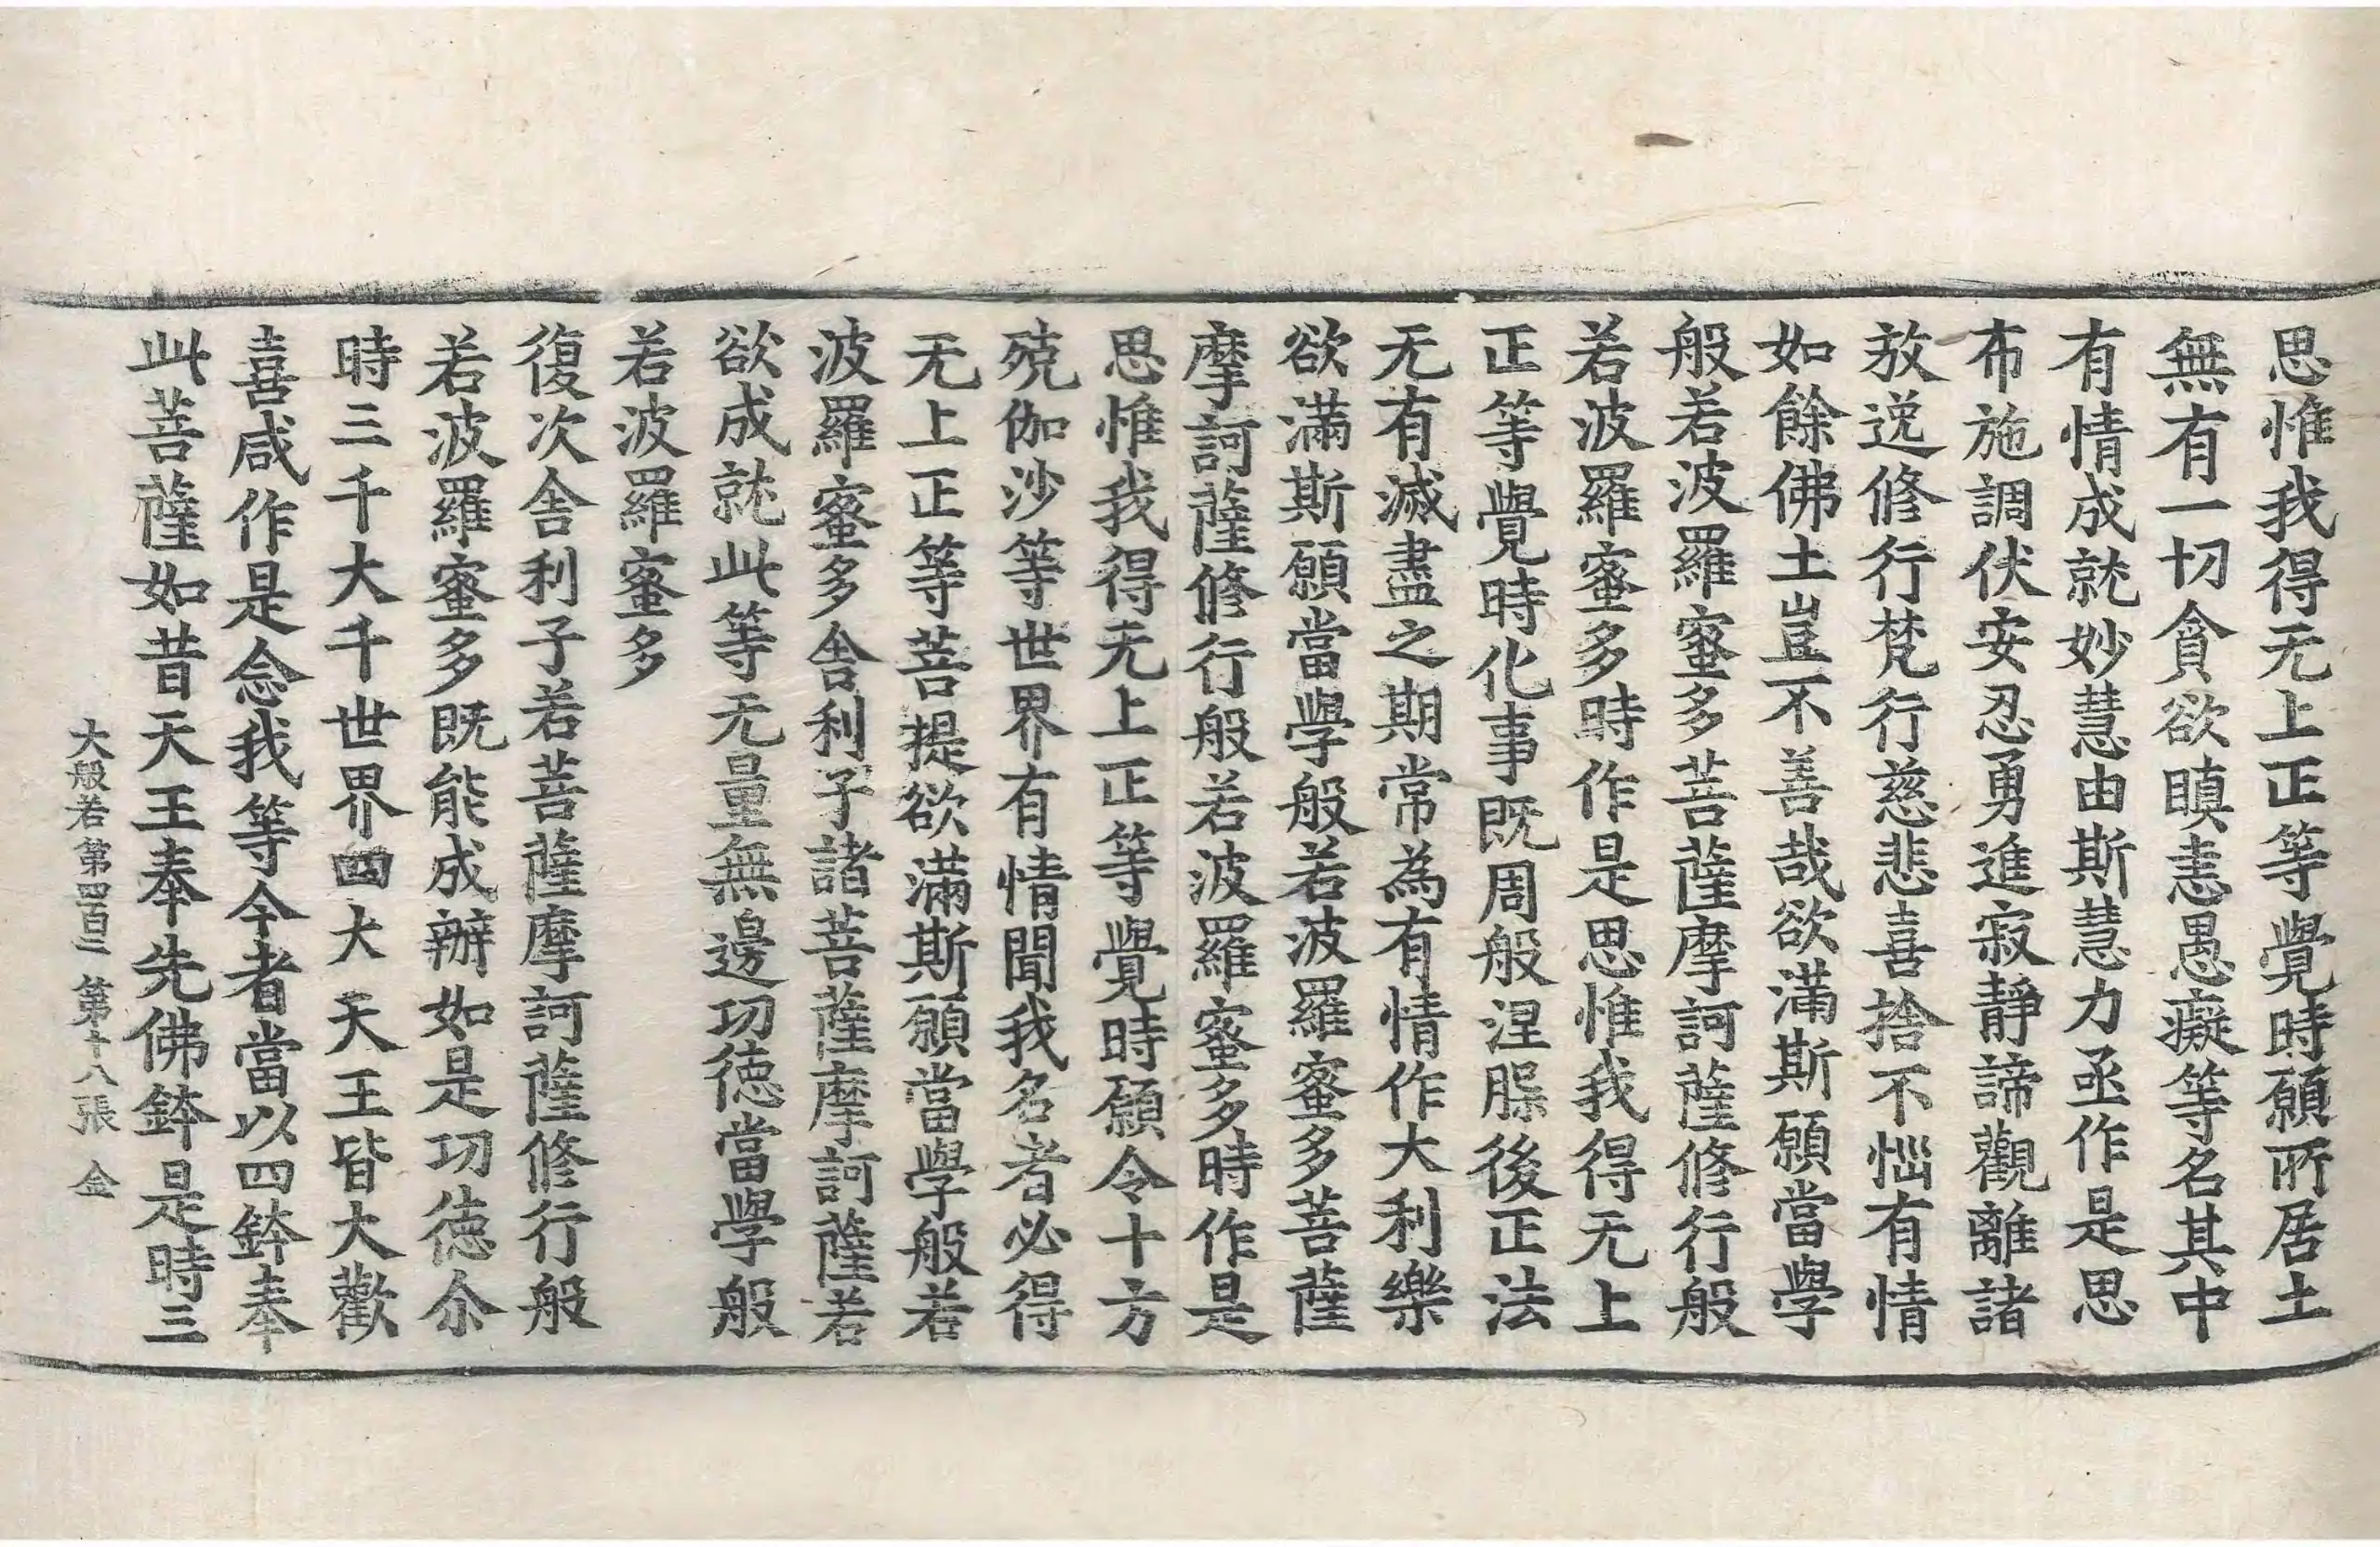 思惟我得无上正等覺時願所居土
無有一切貪欲瞋恚愚癡等名其中
有情成就妙慧由斯慧力亟作是思
布施調伏安忍勇進寂靜諦觀離諸
放逸修行梵行慈悲喜捨不惱有情
如餘佛土豈不善哉欲滿斯願當學
般若波羅蜜多菩薩摩訶薩修行般
若波羅蜜多時作是思惟我得无上
正等覺時化事既周般涅槃後正法
无有滅盡之期常為有情作大利樂
欲滿斯願當學般若波羅蜜多菩薩
摩訶薩修行般若波羅蜜多時作是
思惟我得无上正等覺時願令十方
殑伽沙等世界有情聞我名者必得
无上正等菩提欲滿斯願當學般若
波羅蜜多舍利子諸菩薩摩訶薩若
欲成就此等无量無邊功德當學般
若波羅蜜多
復次舍利子若菩薩摩訶薩修行般
若波羅蜜多既能成辦如是功德尒
時三千大千世界四大天王皆大歡
喜咸作是念我等今者當以四鉢奉
此菩薩如昔天王奉先佛鉢是時三
大般若第四百二 第十八張 金